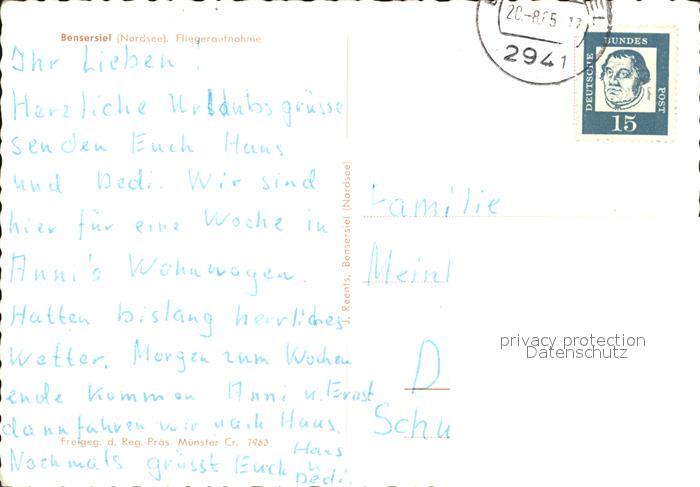 Bensersiel (Nordsee). Fliegeraufnahme
Ihr Lieben!
Herzliche Urlaubsgrüsse
senden Euch Hans
und Dedi. Wir sind
hier für eine Woche in
Anni's Wohnwagen.
Hatten bislang herrliches
Wetter. Morgen zum Wochen
ende kommen Anni u. Ernst
dann fahren wir nach Haus.
Freigeg. d. Reg.-Präs. Münster Cr. 7960
Nochmals grüsst Euch Hans
u.
Dedi.
J. Reents, Bensersiel (Nordsee)
20.-8.65
2941
DEUTSCHE
BUNDES
POST
15
Familie
Meinl
privacy protection
Datenschutz
D
Schu